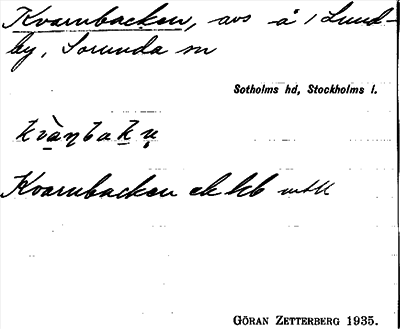 Kvarnbacken, avs å i Lund-
by, Sorunda sn
Sotholms hd, Stockholms l.
Kvarnbacken ek kb
GÖRAN ZETTERBERG 1935.